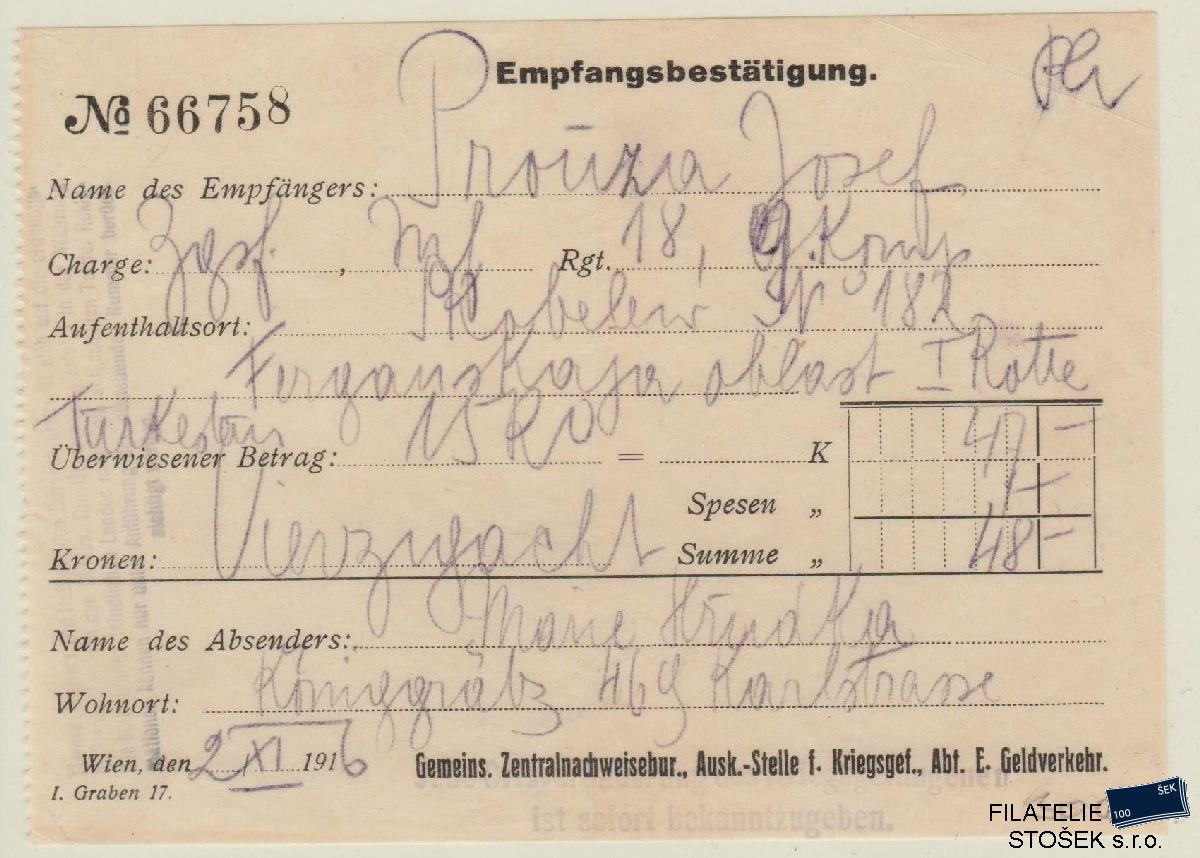 Empfangsbestätigung.
№ 66758
Name des Empfängers: Prouza Josef
Charge: Zgsf., Inf Rgt. 18, 9. Komp
Aufenthaltsort: Skobelew N° 182
Ferganskaja oblast I Rotte
Turkestan
Überwiesener Betrag: 15 R = K 47 —
Spesen „ 1 —
Kronen: Vierzigacht Summe „ 48 —
Name des Absenders: Marie
Wohnort: Königgrätz 469 Karlstrasse
Wien, den 2 XI 1916 Gemeins. Zentralnachweisebur., Ausk.-Stelle f. Kriegsgef., Abt. E. Geldverkehr.
I. Graben 17.
ist sofort bekanntzugeben.
100 ŠEK
FILATELIE
STOŠEK s.r.o.